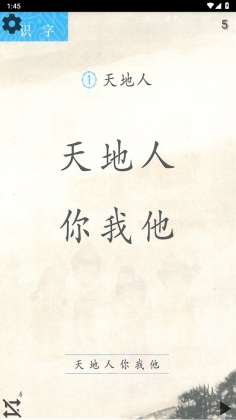 1:45
识字
5
①天地人
天地人
你我他
天地人你我他